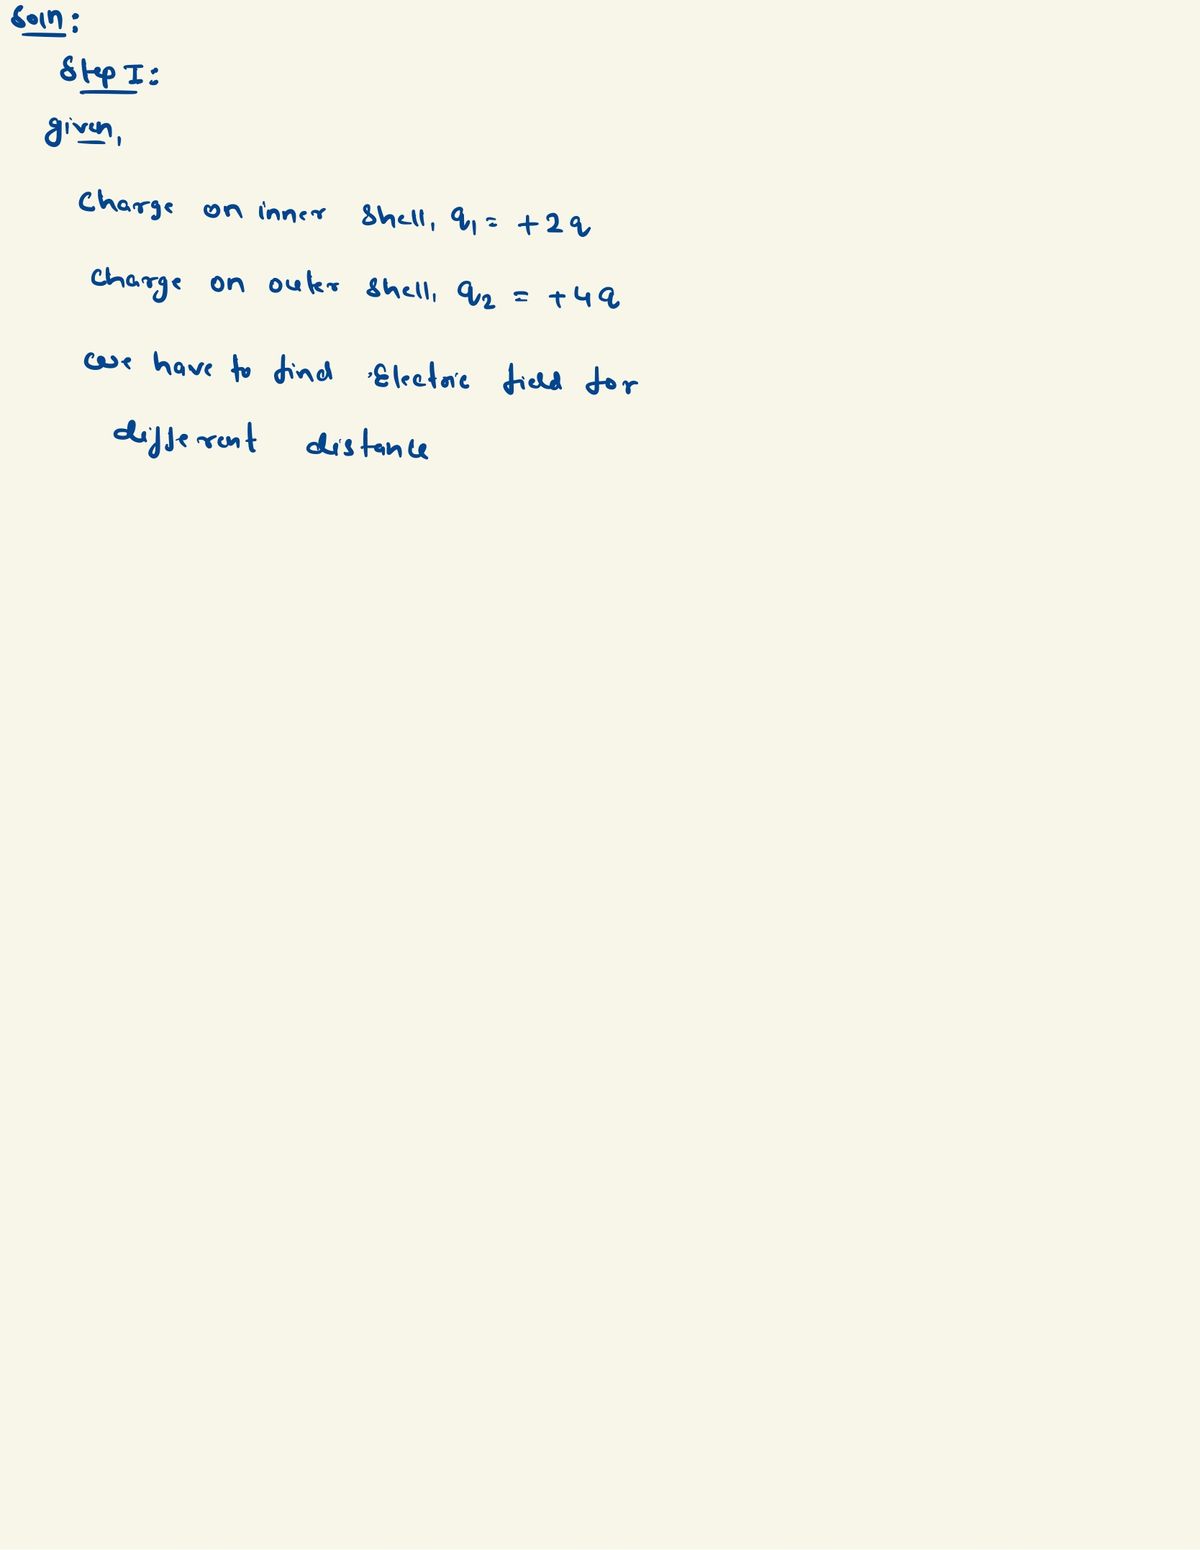 Soln:
Step I:
given,
Charge on inner shell, q₁ = +2q
Charge on outer shell, q₂ = +4q
we have to find Electric field for
different distance